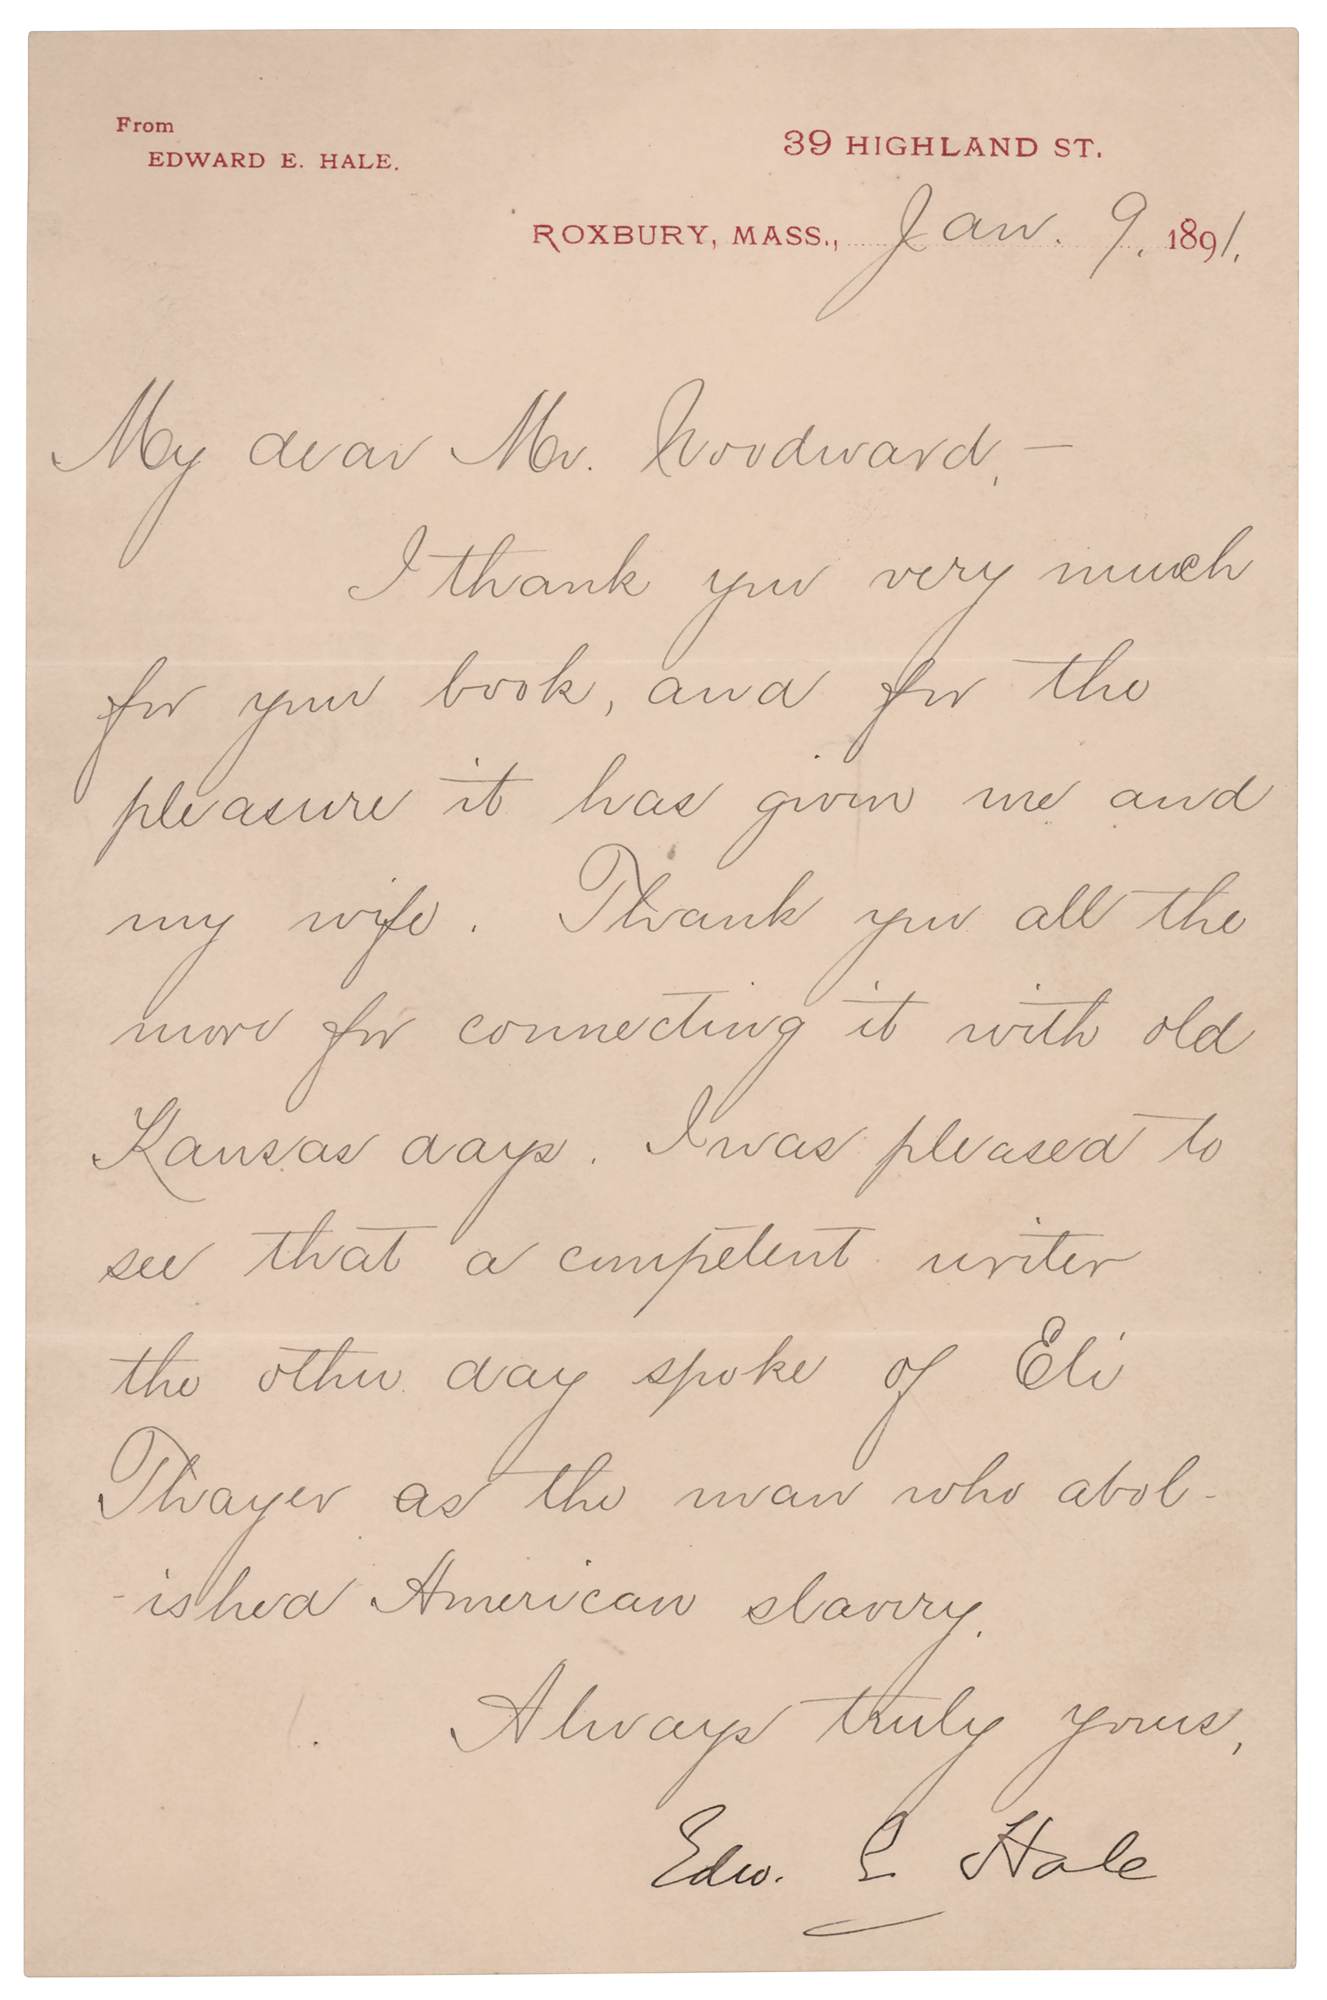 From
EDWARD E. HALE.
39 HIGHLAND ST.
ROXBURY, MASS., Jan. 9, 1891.
My dear Mr. Woodward,—
I thank you very much
for your book, and for the
pleasure it has given me and
my wife. Thank you all the
more for connecting it with old
Kansas days. I was pleased to
see that a competent writer
the other day spoke of Eli
Thayer as the man who abol-
-ished American slavery.
Always truly yours,
Edw. E Hale